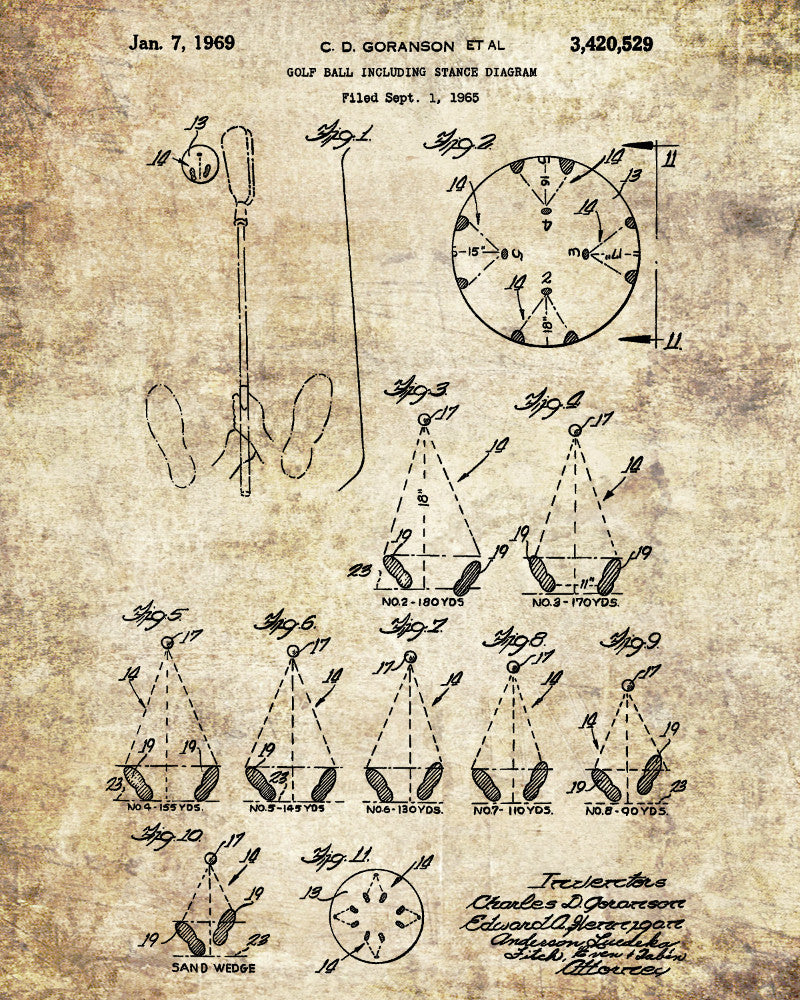 Jan. 7, 1969 C. D. GORANSON ET AL 3,420,529
GOLF BALL INCLUDING STANCE DIAGRAM
Filed Sept. 1, 1965
Fig.1.
13
14
Fig.2.
14
11
13
14
14
14
5
16"
4
15"
5
3
17"
2
18"
11
Fig.3.
17
14
18"
19
19
23
NO.2-180YDS.
Fig.4.
17
14
19
19
11"
NO.3-170YDS.
Fig.5.
17
14
19
19
23
NO.4-155YDS.
Fig.6.
17
14
19
23
NO.5-145YDS
Fig.7.
17
14
NO.6-130YDS.
Fig.8.
17
14
NO.7-110YDS.
Fig.9.
17
14
19
19
23
NO.8-90YDS.
Fig.10.
17
14
19
19
23
SAND WEDGE
Fig.11.
14
13
14
Inventors
Charles D. Goranson
Edward A. Hennigan
Anderson, Luedeka
Fitch, Even & Tabin
Attorney